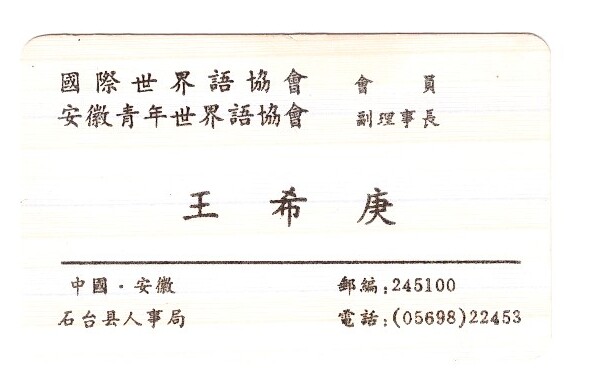 國際世界語協會 會員
安徽青年世界語協會 副理事長
王希庚
中國·安徽 郵編:245100
石台县人事局 電話:(05698)22453